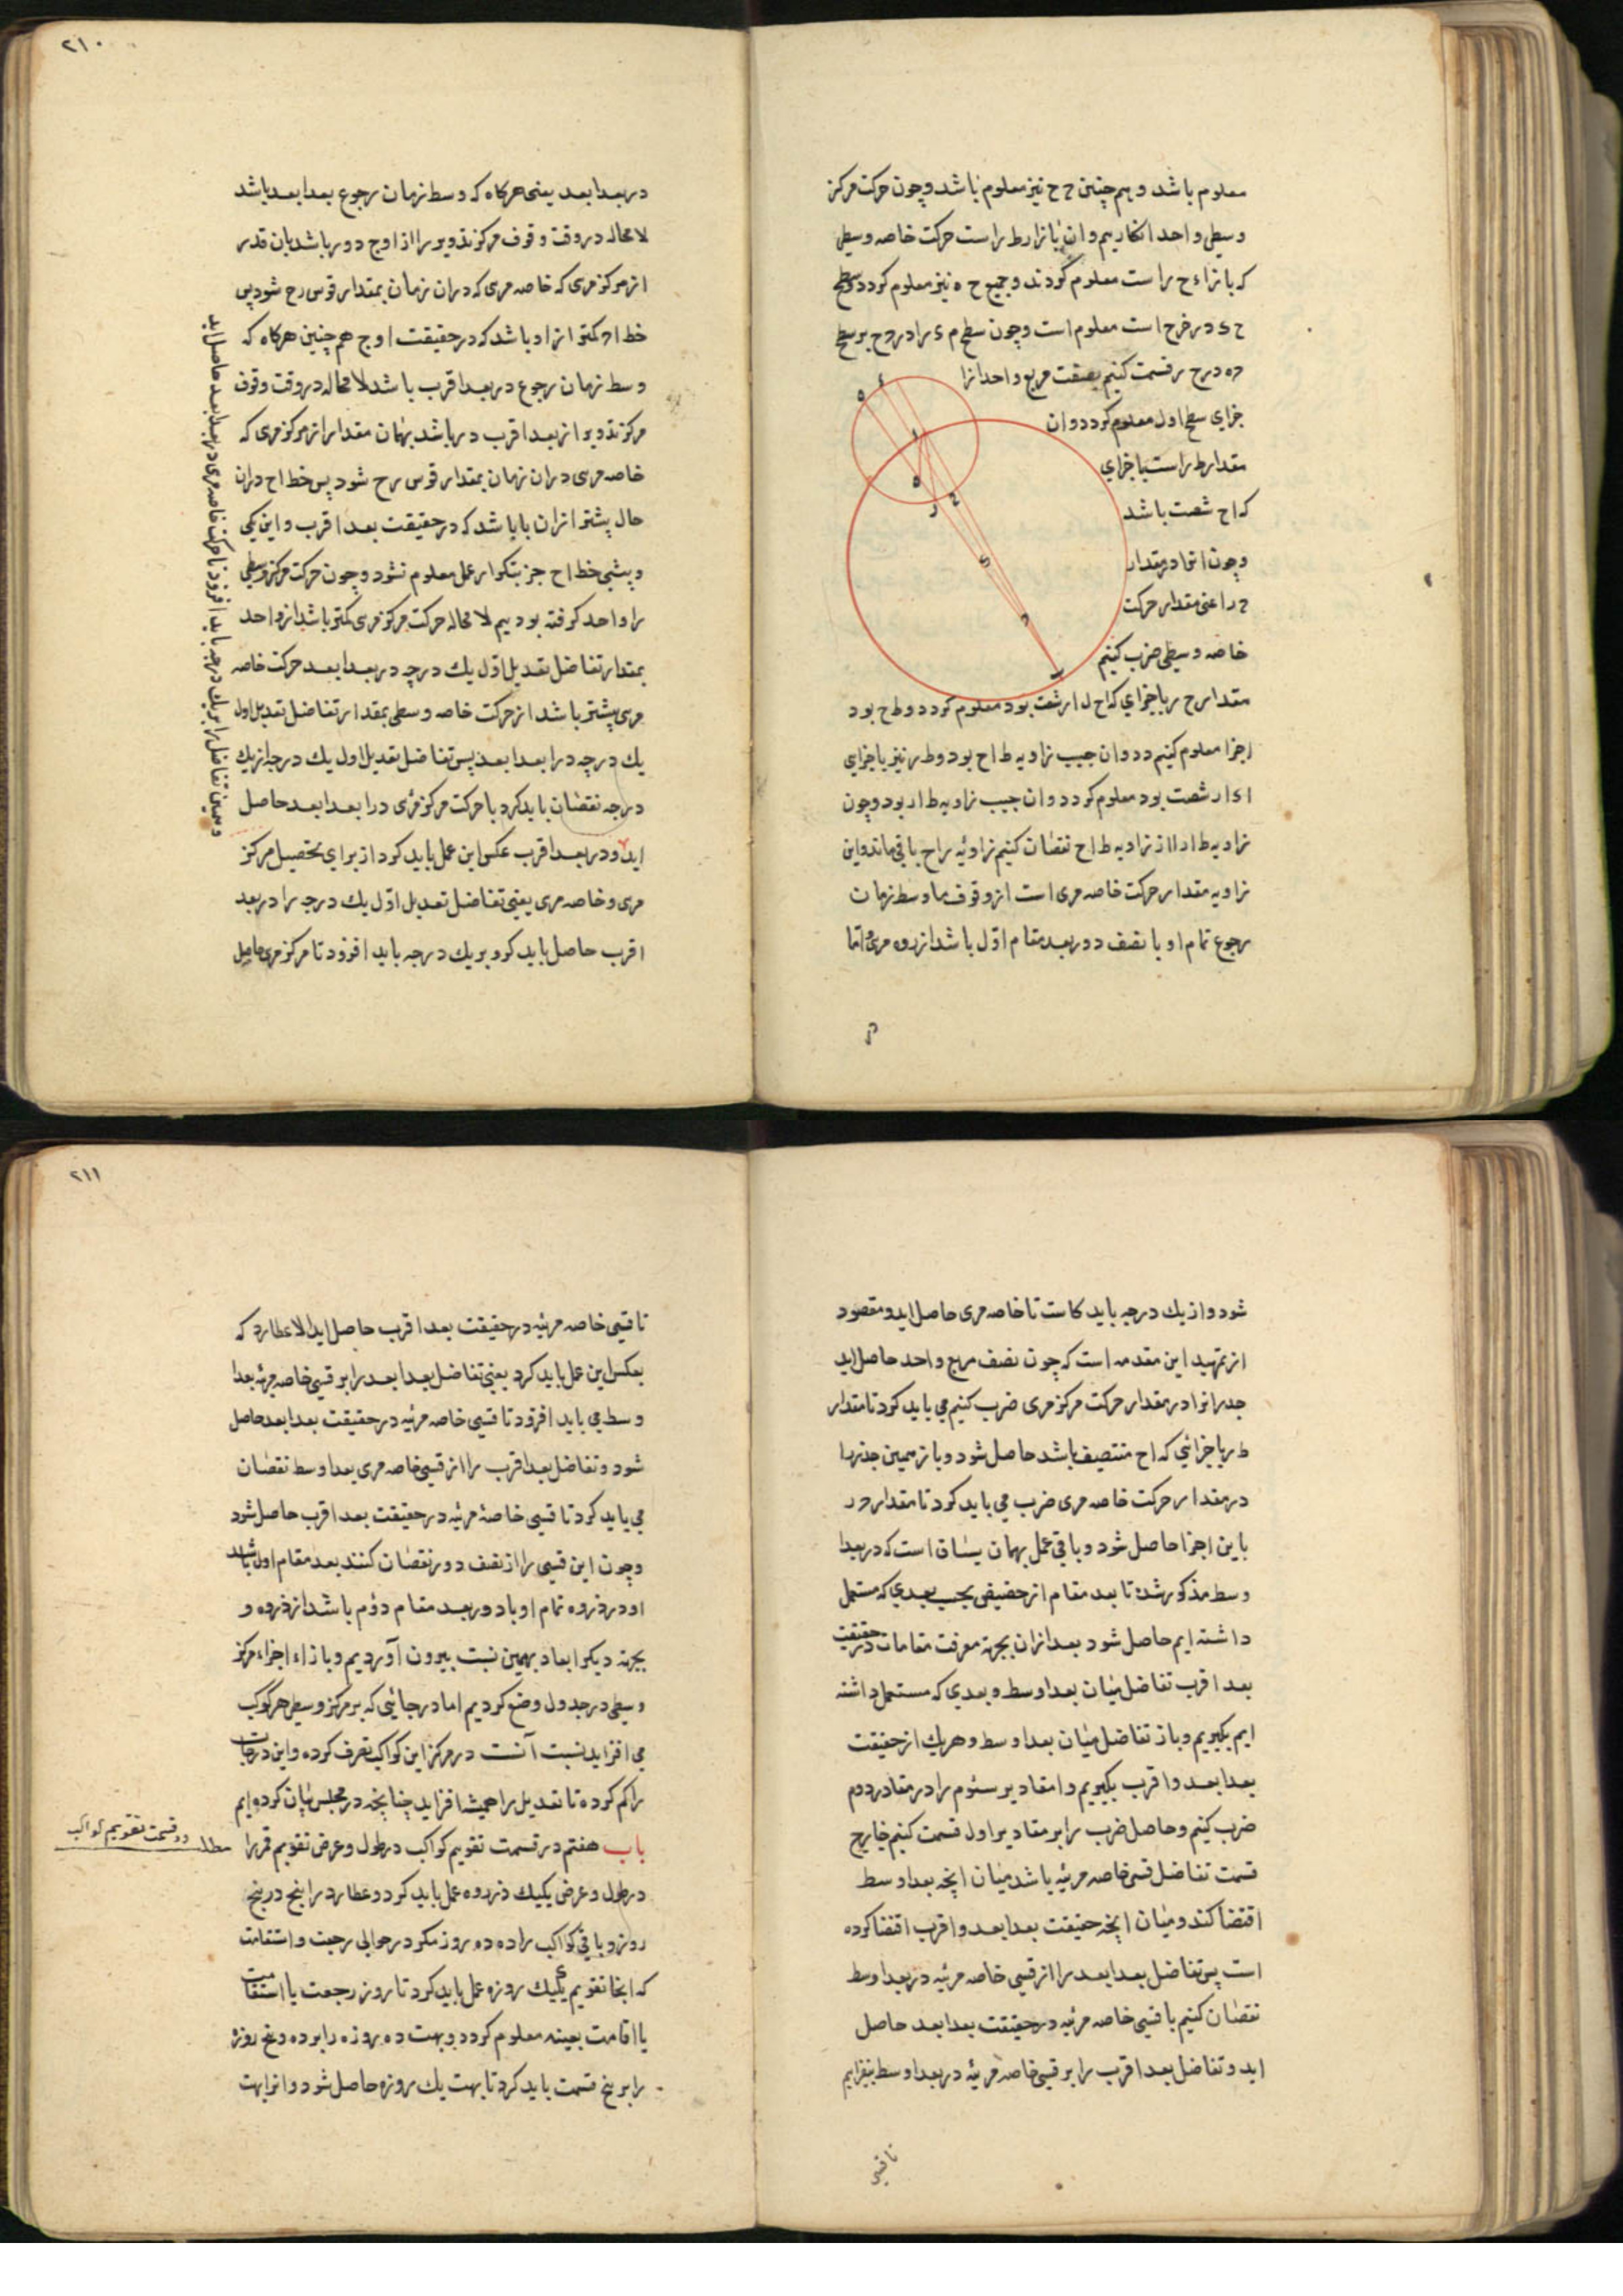 معلوم باشد و هم چنین ح ح نیز معلوم باشد و چون حرکت مرکز
وسطی واحد انکاریم و ان بازا رط راست حرکت خاصه وسطی
که بازاء ح راست معلوم کردند و جمیع ح ه نیز معلوم کردد
ح ی در خرج است معلوم است و چون سطح م ی را در ح بر سطح
ح ه در ح ر قسمت کنیم بصفت مربع واحد ازا
جزای سطح اول معلوم کردد و ان
مقدار ط راست با جزای
که اح شصت باشد
و چون انرا در مقدار
ح ر اعنی مقدار حرکت
خاصه وسطی ضرب کنیم
مقدار ح ر با جزای که اح ل ار شصت بود معلوم کردد و ط ح بود
اجزا معلوم کنیم و ان جیب زاویه ط اح بود و ط ر نیز با جزای
ا ی ار شصت بود معلوم کردد و ان جیب زاویه ط ار بود و چون
زاویه ط ار از زاویه ط اح نقصان کنیم زاویه راح باقی ماند و این
زاویه مقدار حرکت خاصه مری است از وقوف ما وسط زمان
رجوع تمام او با نصف دور بعد مقام اول باشد از ذروه مری و اما
در بعد ابعد یعنی هرکاه که وسط زمان رجوع بعد ابعد باشد
لا محاله در وقت وقوف مرکز تدویر را از اوج دور باشد بان قدر
از مرکز مری که خاصه مری که دران زمان بمقدار قوس رح شود پس
خط اح کمتر از او باشد که در حقیقت اوج هم چنین هرکاه که
وسط زمان رجوع در بعد اقرب باشد لا محاله در وقت وقوف
مرکز تدویر از بعد اقرب در باشد بهمان مقدار از مرکز مری که
خاصه مری دران زمان بمقدار قوس رح شود پس خط اح دران
حال پشتر ازان بابا شد که در حقیقت بعد اقرب و این کمی
و پیشی خط اح جز بتکرار عمل معلوم نشود و چون حرکت مرکز وسطی
را واحد کرفته بودیم لا محاله حرکت مرکز مری کمتر باشد از واحد
بمقدار تفاضل تعدیل اول یك درجه در بعد ابعد حرکت خاصه
مری پشتر باشد از حرکت خاصه وسطی بمقدار تفاضل تعدیل اول
یك درجه در ابعد ابعد پس تفاضل تعدیل اول یك درجه از یك
درجه نقصان باید کرد با حرکت مرکز مری در ابعد ابعد حاصل
اید و در بعد اقرب عکس این عمل باید کرد از برای تحصیل مرکز
مری و خاصه مری یعنی تفاضل تعدیل اول یك درجه را در بعد
اقرب حاصل باید کرد و بر یك درجه باید افزود تا مرکز مری حاصل
و همین تفاضل را بر یك درجه باید افزود تا حرکت خاصه مری در بعد ابعد حاصل اید
٢١٠
شود و از یك درجه باید کاست تا خاصه مری حاصل اید و مقصود
از تمهید این مقدمه است که چون نصف مربع واحد حاصل اید
جذر انرا در مقدار حرکت مرکز مری ضرب کنیم می باید کرد تا مقدار
ط ر با جزائی که اح منتصف باشد حاصل شود و باز همین جذر را
در مقدار حرکت خاصه مری ضرب می باید کرد تا مقدار ح ر
باین اجزا حاصل شود و باقی عمل بهمان بسان است که در بعد ا
وسط مذکور شد تا بعد مقام از حضیض بحسب بعدی که مستعمل
داشته ایم حاصل شود بعد ازان بجهة معرفت مقامات در حقیقت
بعد اقرب تفاضل میان بعد اوسط و بعدی که مستعمل داشته
ایم بکیریم و باز تفاضل میان بعد اوسط و هریك از حقیقت
بعد ابعد و اقرب بکیریم و مقادیر سئوم را در مقادر دوم
ضرب کنیم و حاصل ضرب را بر مقادیر اول قسمت کنیم خارج
قسمت تفاضل قسی خاصه مرئیه باشد میان انچه بعد اوسط
اقتضا کند و میان انچه حقیقت بعد ابعد و اقرب اقتضا کرده
است پس تفاضل بعد ابعد را از قسی خاصه مرئیه در بعد اوسط
نقصان کنیم با قسی خاصه مرئیه در حقیقت بعد ابعد حاصل
اید و تفاضل بعد اقرب را بر قسی خاصه مرئیه در بعد اوسط بیفزایم
تا قسی
تا قسی خاصه مرئیه در حقیقت بعد اقرب حاصل اید الا عطارد که
بعکس این عمل باید کرد یعنی تفاضل بعد ابعد را بر قسی خاصه مرئیه بعد ا
وسط می باید افزود تا قسی خاصه مرئیه در حقیقت بعد ابعد حاصل
شود و تفاضل بعد اقرب را از قسی خاصه مری بعد اوسط نقصان
می باید کرد تا قسی خاصۀ مرئیه در حقیقت بعد اقرب حاصل شود
و چون این قسی را از نصف دور نقصان کنند بعد مقام اول باشد
او در ذروه تمام او با دور بعد مقام دوم باشد از ذروه و
بجهة دیکر ابعاد بهمین نسبت بیرون آوردیم و بازاء اجزاء مرکز
وسطی در جدول وضع کردیم اما در جائی که بر مرکز وسطی هر کوکب
می افزاید نسبت آنست در مرکز این کواکب تصرف کرده و این درجات
را کم کرده تا تعدیل را همیشه افزاید چنانچه در مجلس بیان کرده ایم
باب هفتم در قسمت تقویم کواکب در طول و عرض تقویم قمر را
در طول و عرض یکیك ذروه عمل باید کرد و عطارد را پنج در پنج
روز و باقی کواکب را ده ده روز مکر در حوالی رجعت و استقامت
که انجا تقویم یکیك روزه عمل باید کرد تا روز رجعت یا استقامت
یا اقامت بعینه معلوم کردد و بهت ده روزه را بر ده و پنج روزه
را بر پنج قسمت باید کرد تا بهت یك روزه حاصل شود و انرا بهت
مطلـ در قسمت تقویم کواکب
٢١١